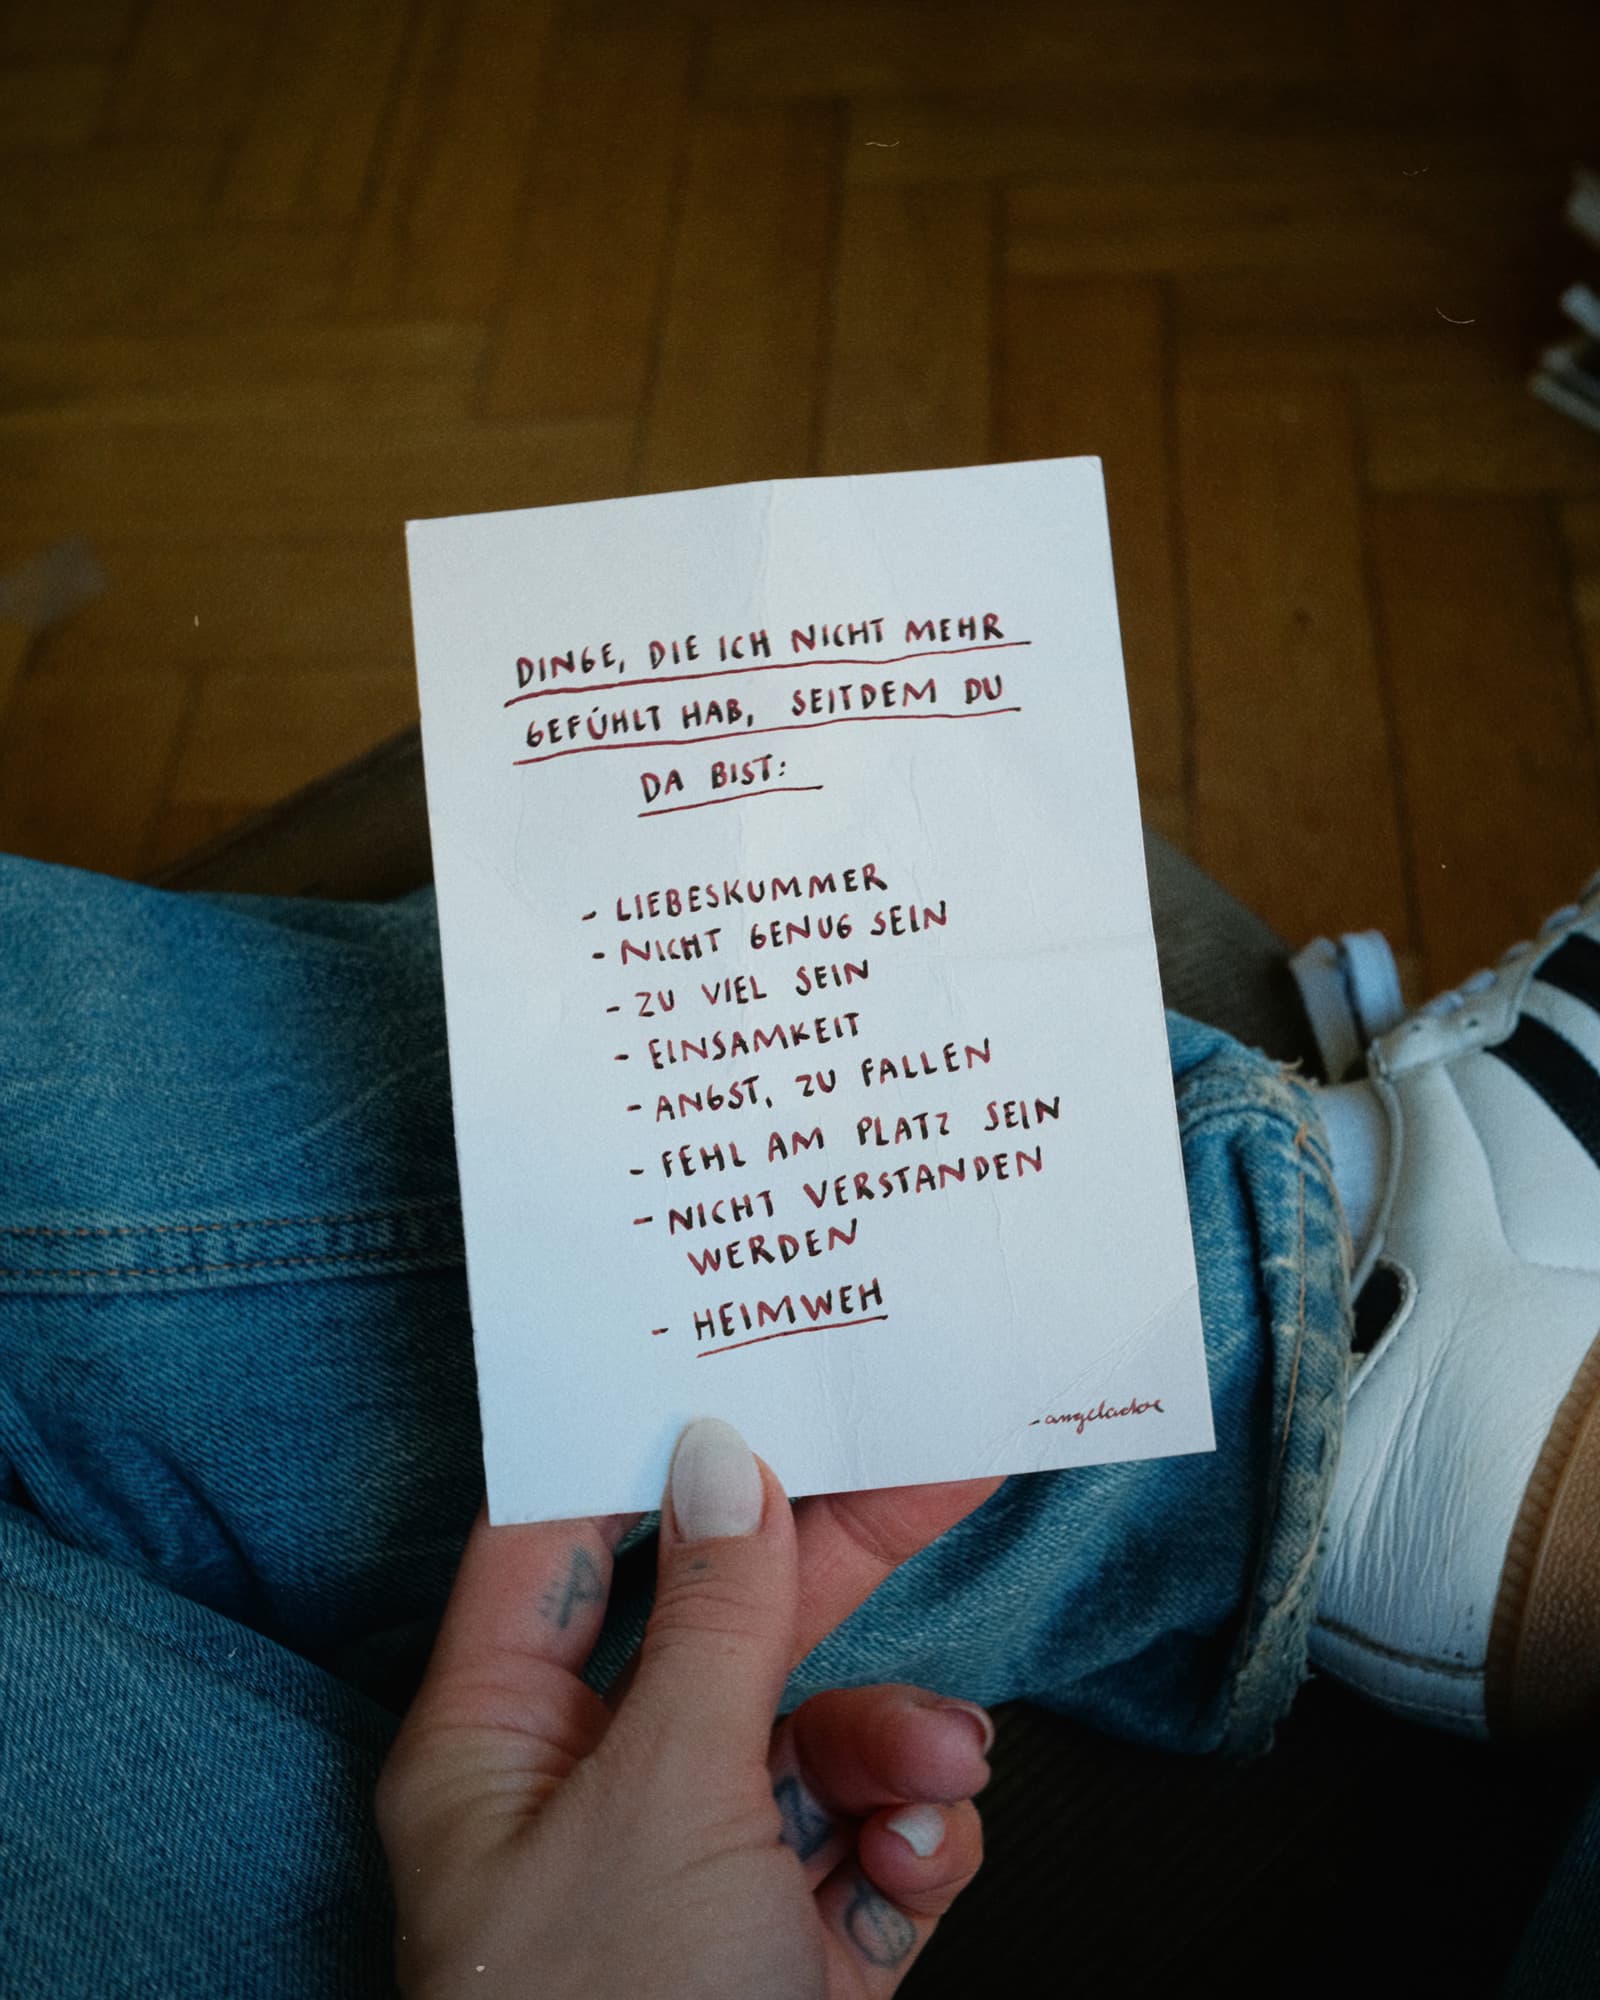 DINGE, DIE ICH NICHT MEHR
GEFÜHLT HAB, SEITDEM DU
DA BIST:
- LIEBESKUMMER
- NICHT GENUG SEIN
- ZU VIEL SEIN
- EINSAMKEIT
- ANGST, ZU FALLEN
- FEHL AM PLATZ SEIN
- NICHT VERSTANDEN
WERDEN
- HEIMWEH
- angeladoe